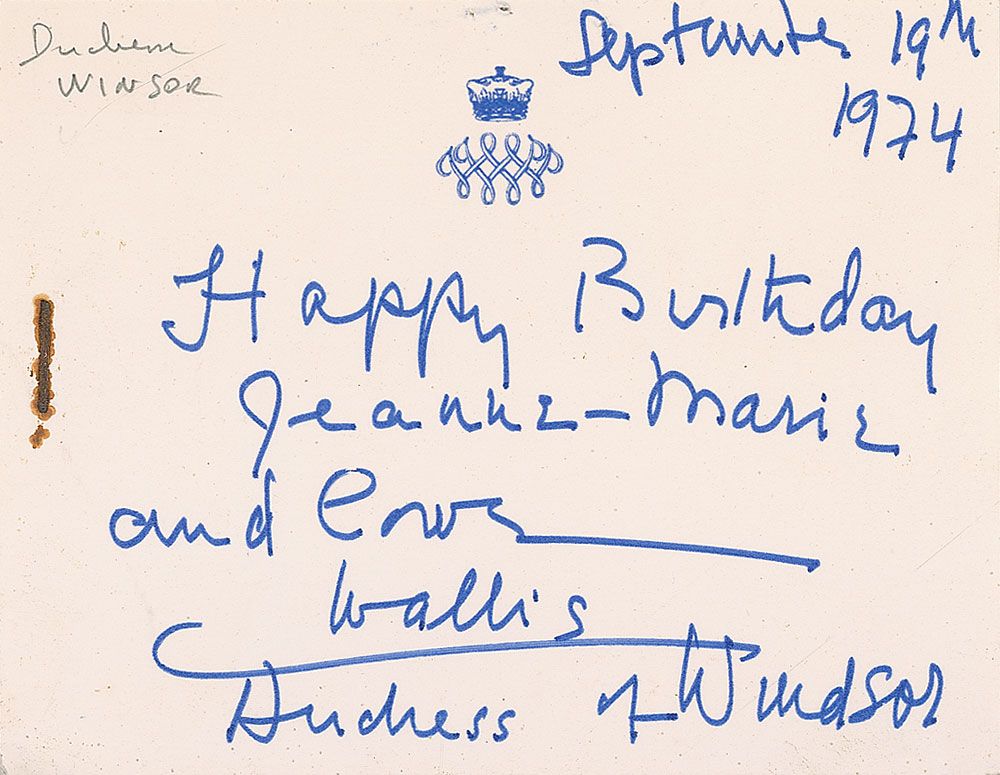 Duchesse
WINSOR
September 19th
1974
Happy Birthday
Jeanne-Marie
and love
Wallis
Duchess of Windsor